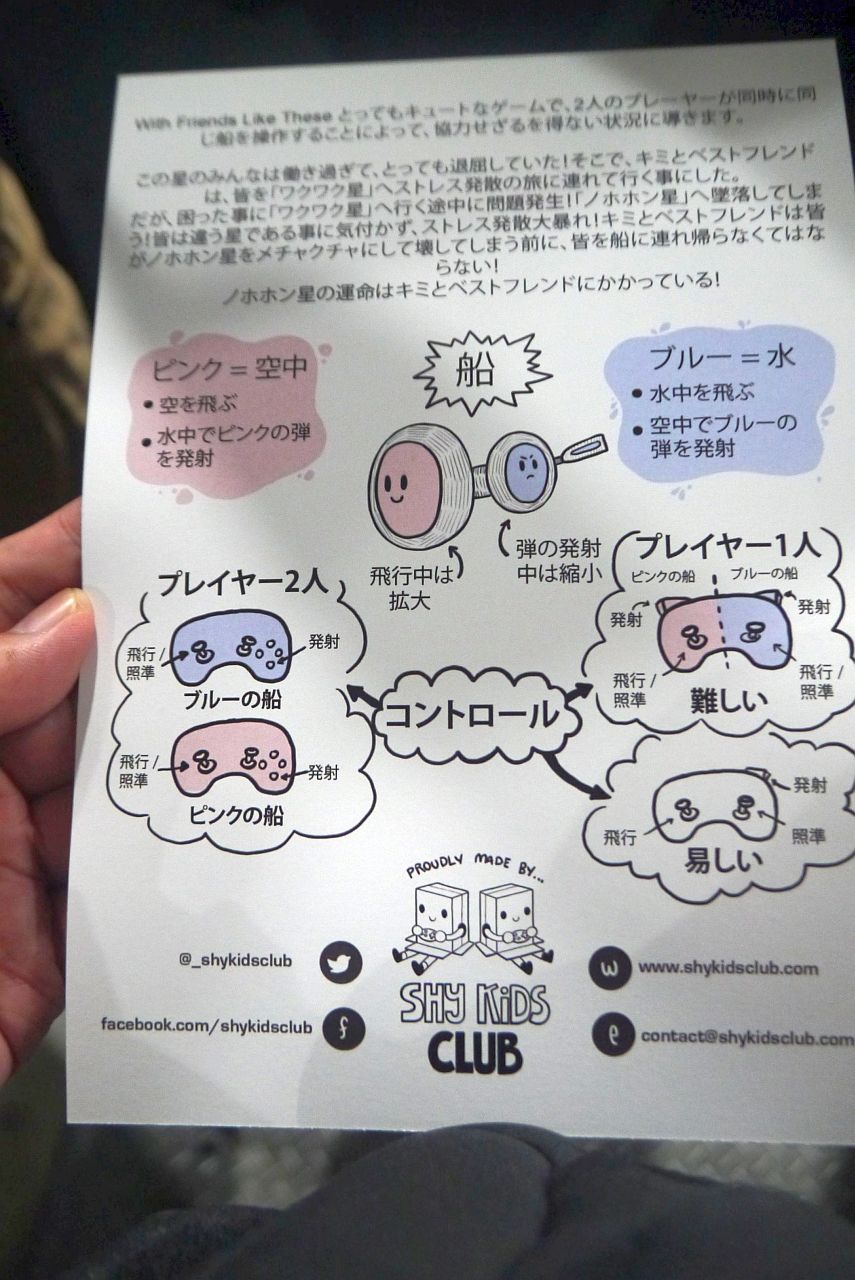 With Friends Like These とってもキュートなゲームで、2人のプレーヤーが同時に同
じ船を操作することによって、協力せざるを得ない状況に導きます。
この星のみんなは働き過ぎて、とっても退屈していた!そこで、キミとベストフレンド
は、皆を「ワクワク星」へストレス発散の旅に連れて行く事にした。
だが、困った事に「ワクワク星」へ行く途中に問題発生!!「ノホホン星」へ墜落してしま
う!皆は違う星である事に気付かず、ストレス発散大暴れ!キミとベストフレンドは皆
がノホホン星をメチャクチャにして壊してしまう前に、皆を船に連れ帰らなくてはな
らない!
ノホホン星の運命はキミとベストフレンドにかかっている!
ピンク = 空中
• 空を飛ぶ
• 水中でピンクの弾
を発射
船
ブルー = 水
• 水中を飛ぶ
• 空中でブルーの
弾を発射
飛行中は
拡大
弾の発射
中は縮小
プレイヤー2人
飛行 /
照準
発射
ブルーの船
飛行 /
照準
発射
ピンクの船
コントロール
プレイヤー1人
ピンクの船
ブルーの船
発射
発射
飛行 /
照準
飛行 /
照準
難しい
発射
飛行
照準
易しい
PROUDLY MADE BY...
SHY KiDS
CLUB
@_shykidsclub
facebook.com/shykidsclub
www.shykidsclub.com
contact@shykidsclub.com